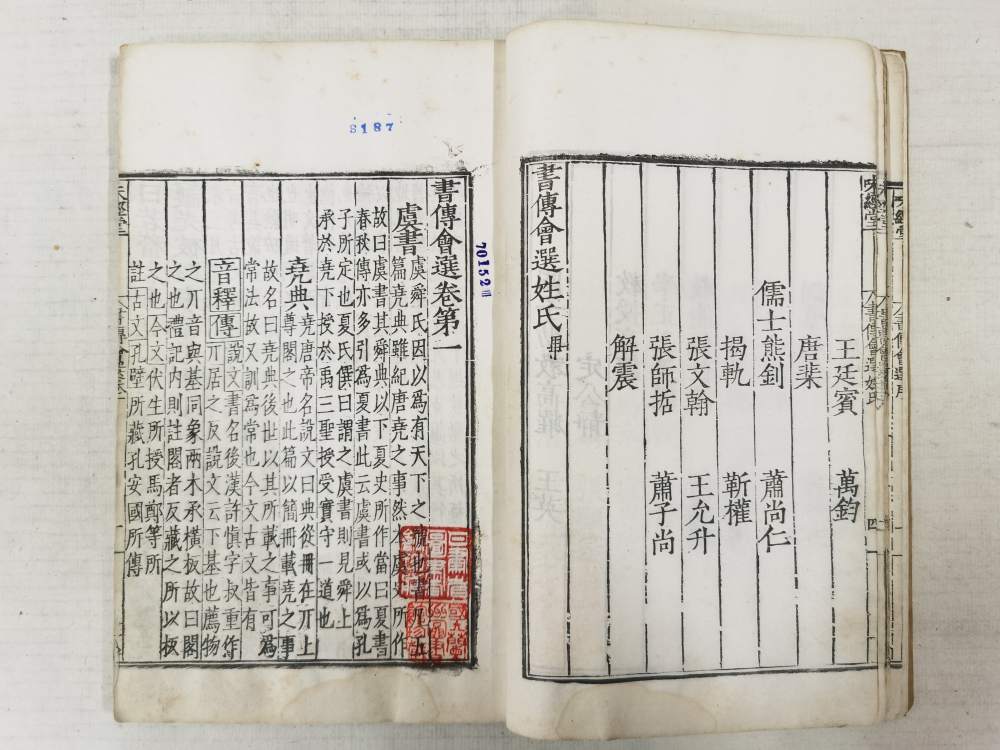 王廷賓　萬鈞
唐棐
儒士熊釗　蕭尚仁
揭軌　靳權
張文翰　王允升
張師㧞　蕭子尚
解震
書傳會選姓氏畢
味經堂
書傳會選姓氏
四
S187
70152
書傳會選卷第一
虞書
虞舜氏因以爲有天下之號也書凡五
篇堯典雖紀唐堯之事然本虞史所作
故曰虞書其舜典以下夏史所作當曰夏書
春秋傳亦多引爲夏書此云虞書或以爲孔
子所定也夏氏僎曰謂之虞書則見舜上
承於堯下授於禹三聖授受實守一道也
堯典
堯唐帝名說文曰典從冊在丌上
尊閣之也此篇以簡冊載堯之事
故名曰堯典後世以其所載之事可爲
常法故又訓爲常也今文古文皆有
音釋傳
說文書名後漢許慎字叔重作
丌居之反說文云下基也薦物
之丌音與基同象兩木承橫板故曰閣
之也禮記內則註閣者反藏之所以板
之也今文伏生所授馬鄭等所
註古文孔壁所藏孔安國所傳